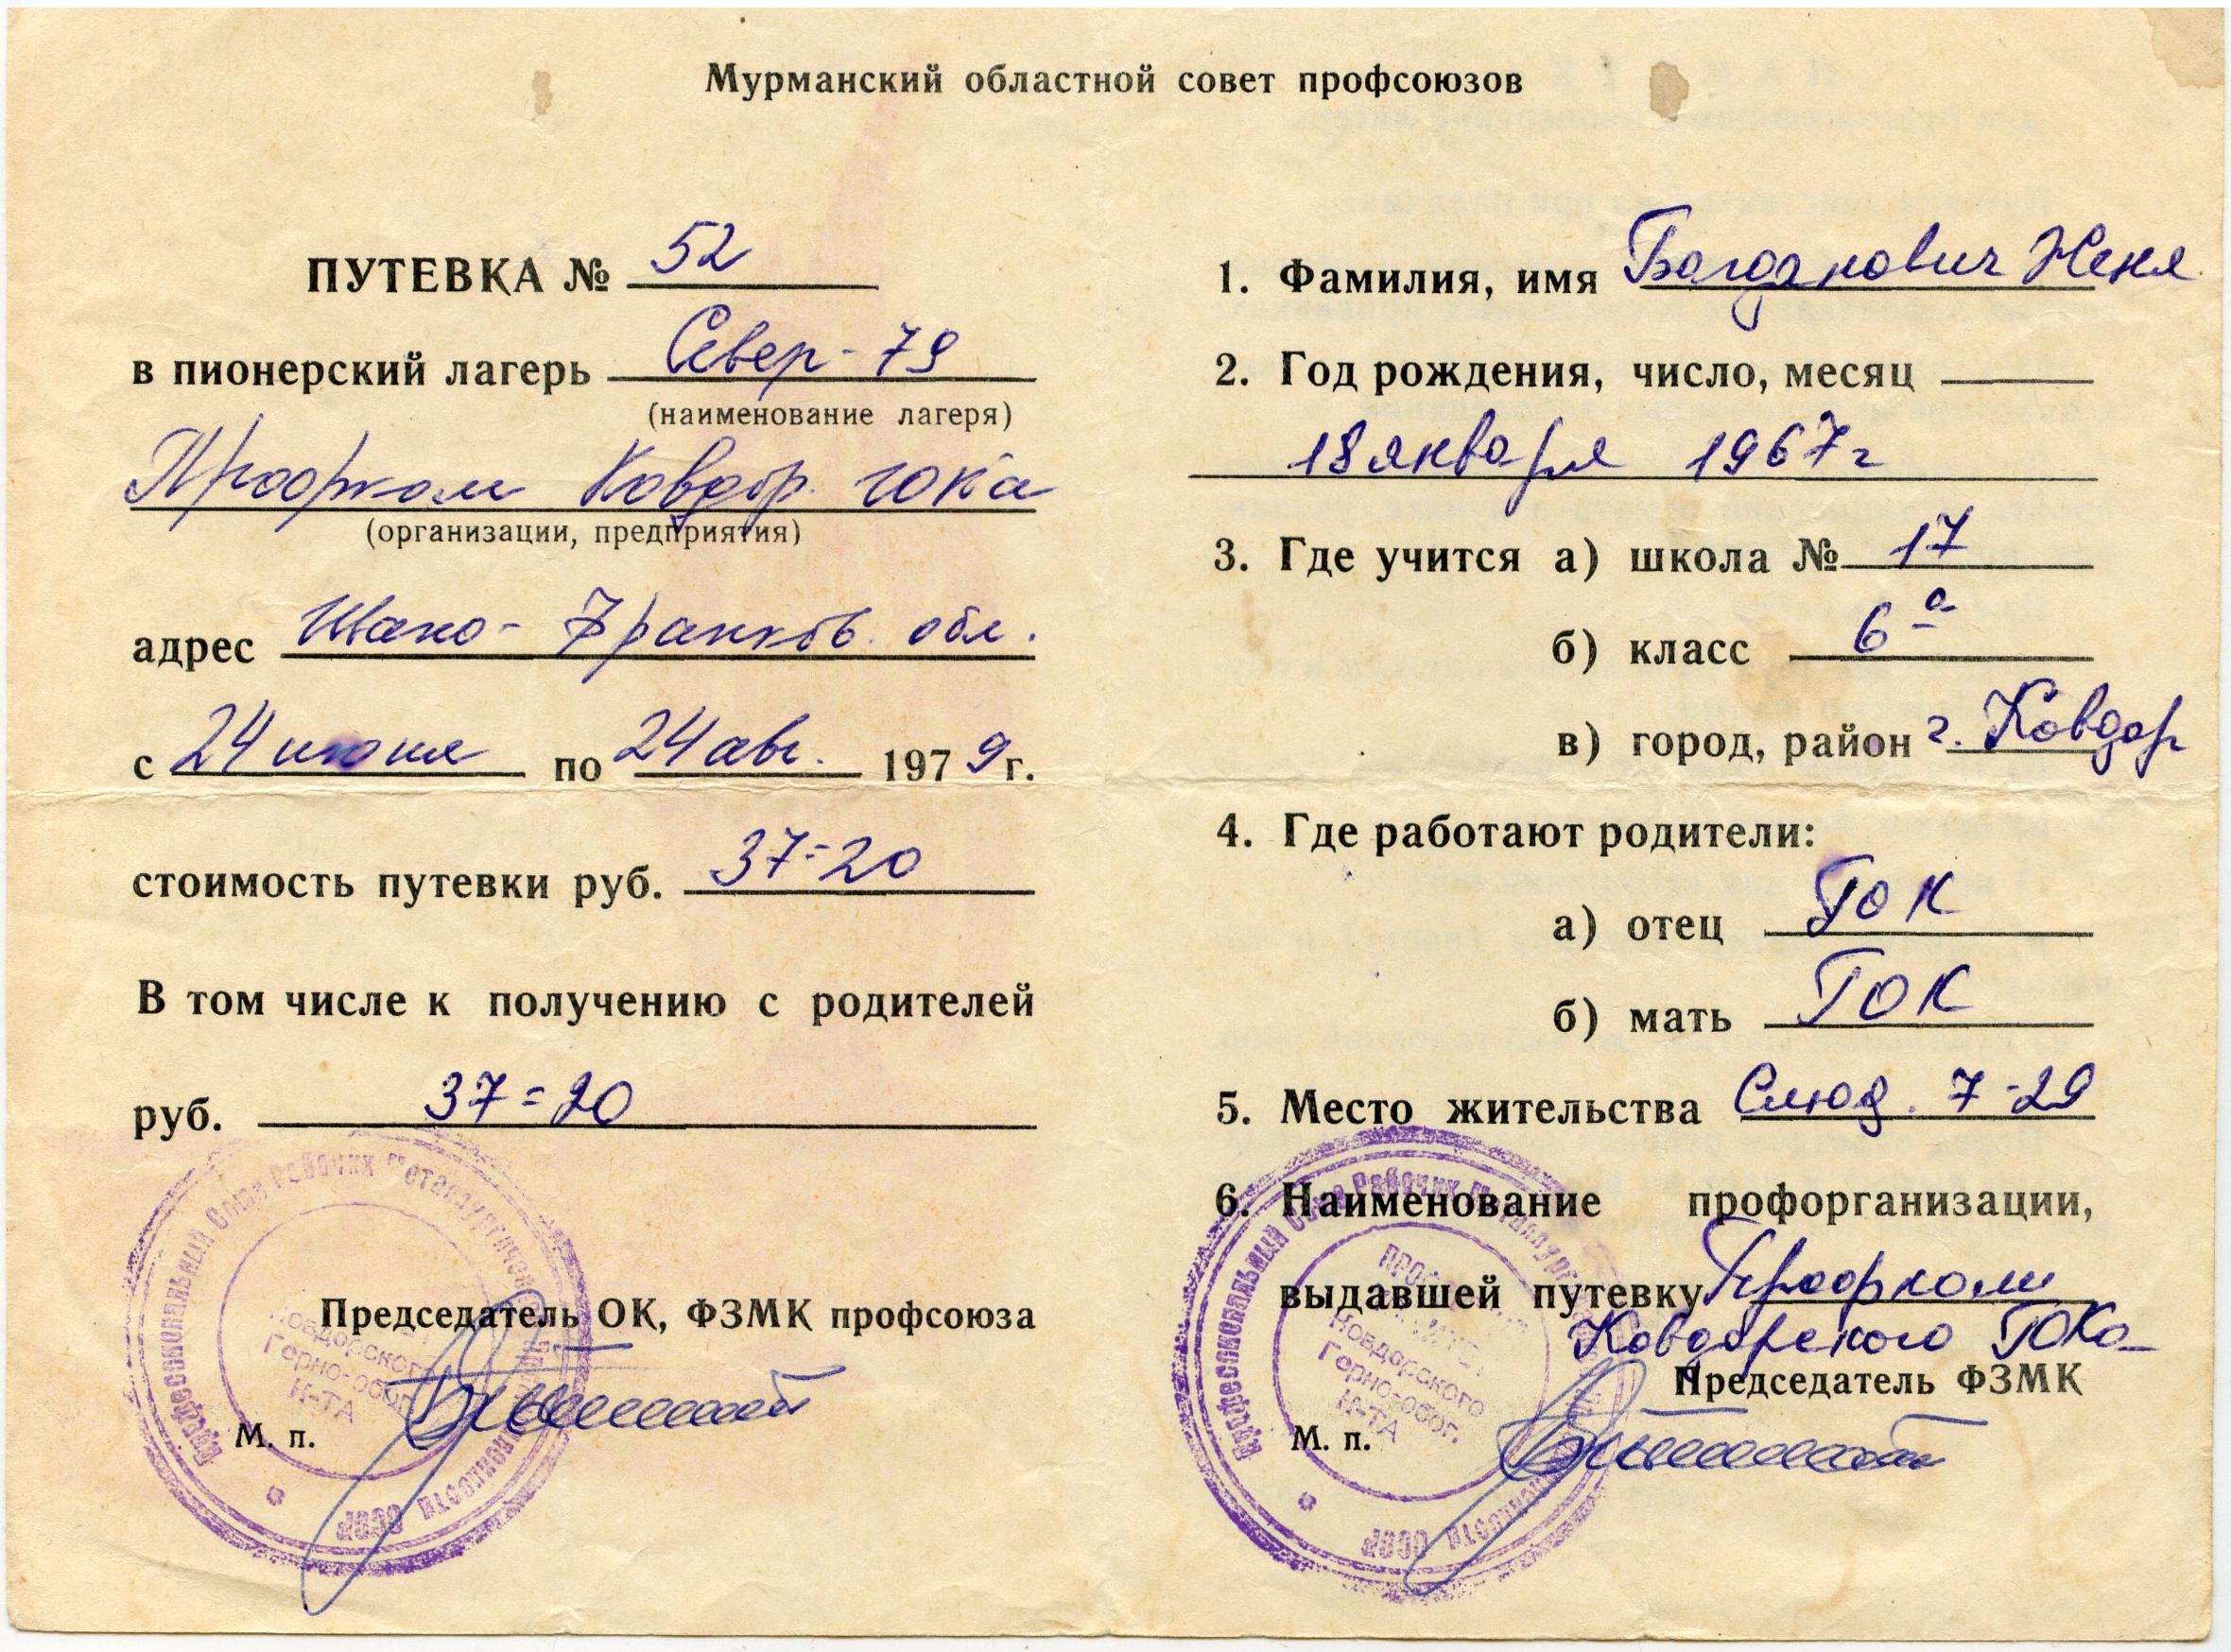 Мурманский областной совет профсоюзов
ПУТЕВКА № 52
в пионерский лагерь Север-79
(наименование лагеря)
Профком Ковдор. ГОКа
(организации, предприятия)
адрес Ивано-Франков. обл.
с 24 июня по 24 авг. 1979 г.
стоимость путевки руб. 37=20
В том числе к получению с родителей
руб. 37=20
Председатель ОК, ФЗМК профсоюза
М. п.
Профессиональный Союз Рабочих Металлургической
СССР
Ковдорского
Горно-обог.
К-ТА
1. Фамилия, имя Богданович Женя
2. Год рождения, число, месяц
18 января 1967 г
3. Где учится а) школа № 17
б) класс 6 а
в) город, район г. Ковдор
4. Где работают родители:
а) отец ГОК
б) мать ГОК
5. Место жительства Слюд. 7-29
6. Наименование профорганизации,
выдавшей путевку Профком
Ковдорского ГОКа
Председатель ФЗМК
М. п.
Профессиональный Союз Рабочих
СССР
Ковдорского
Горно-обог.
К-ТА